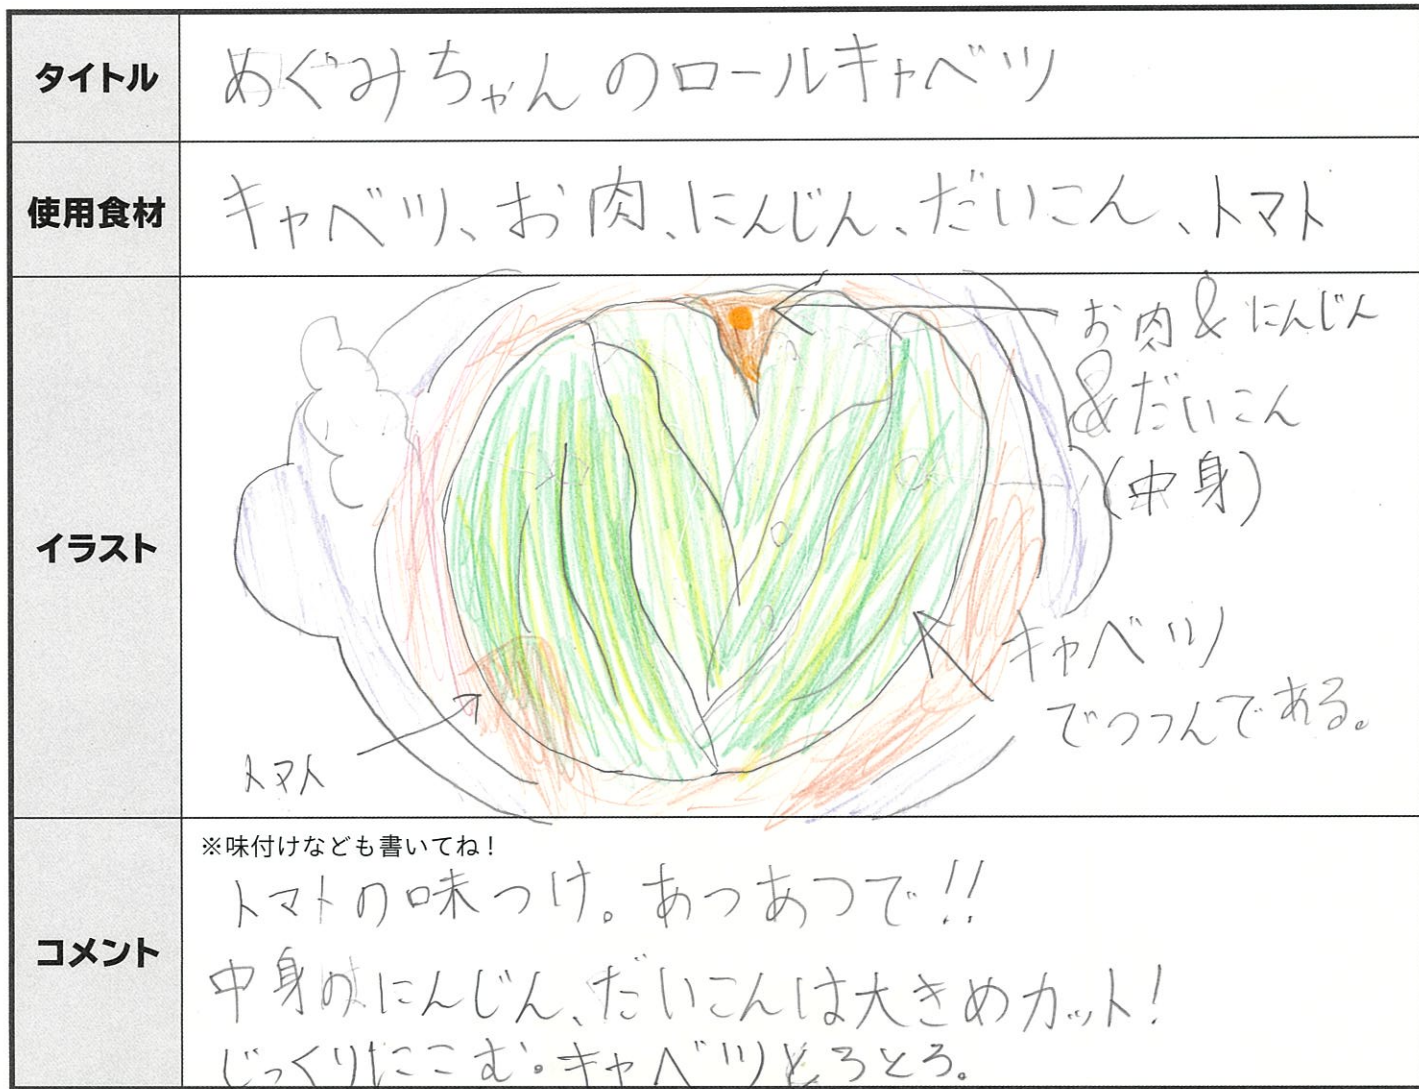 タイトル
めぐみちゃんのロールキャベツ
使用食材
キャベツ、お肉、にんじん、だいこん、トマト
イラスト
お肉&にんじん
&だいこん
(中身)
キャベツ
でつつんである。
トマト
コメント
※味付けなども書いてね!
トマトの味つけ。あつあつで!!
中身のにんじん、だいこんは大きめカット!
じっくりにこむ。キャベツとろとろ。